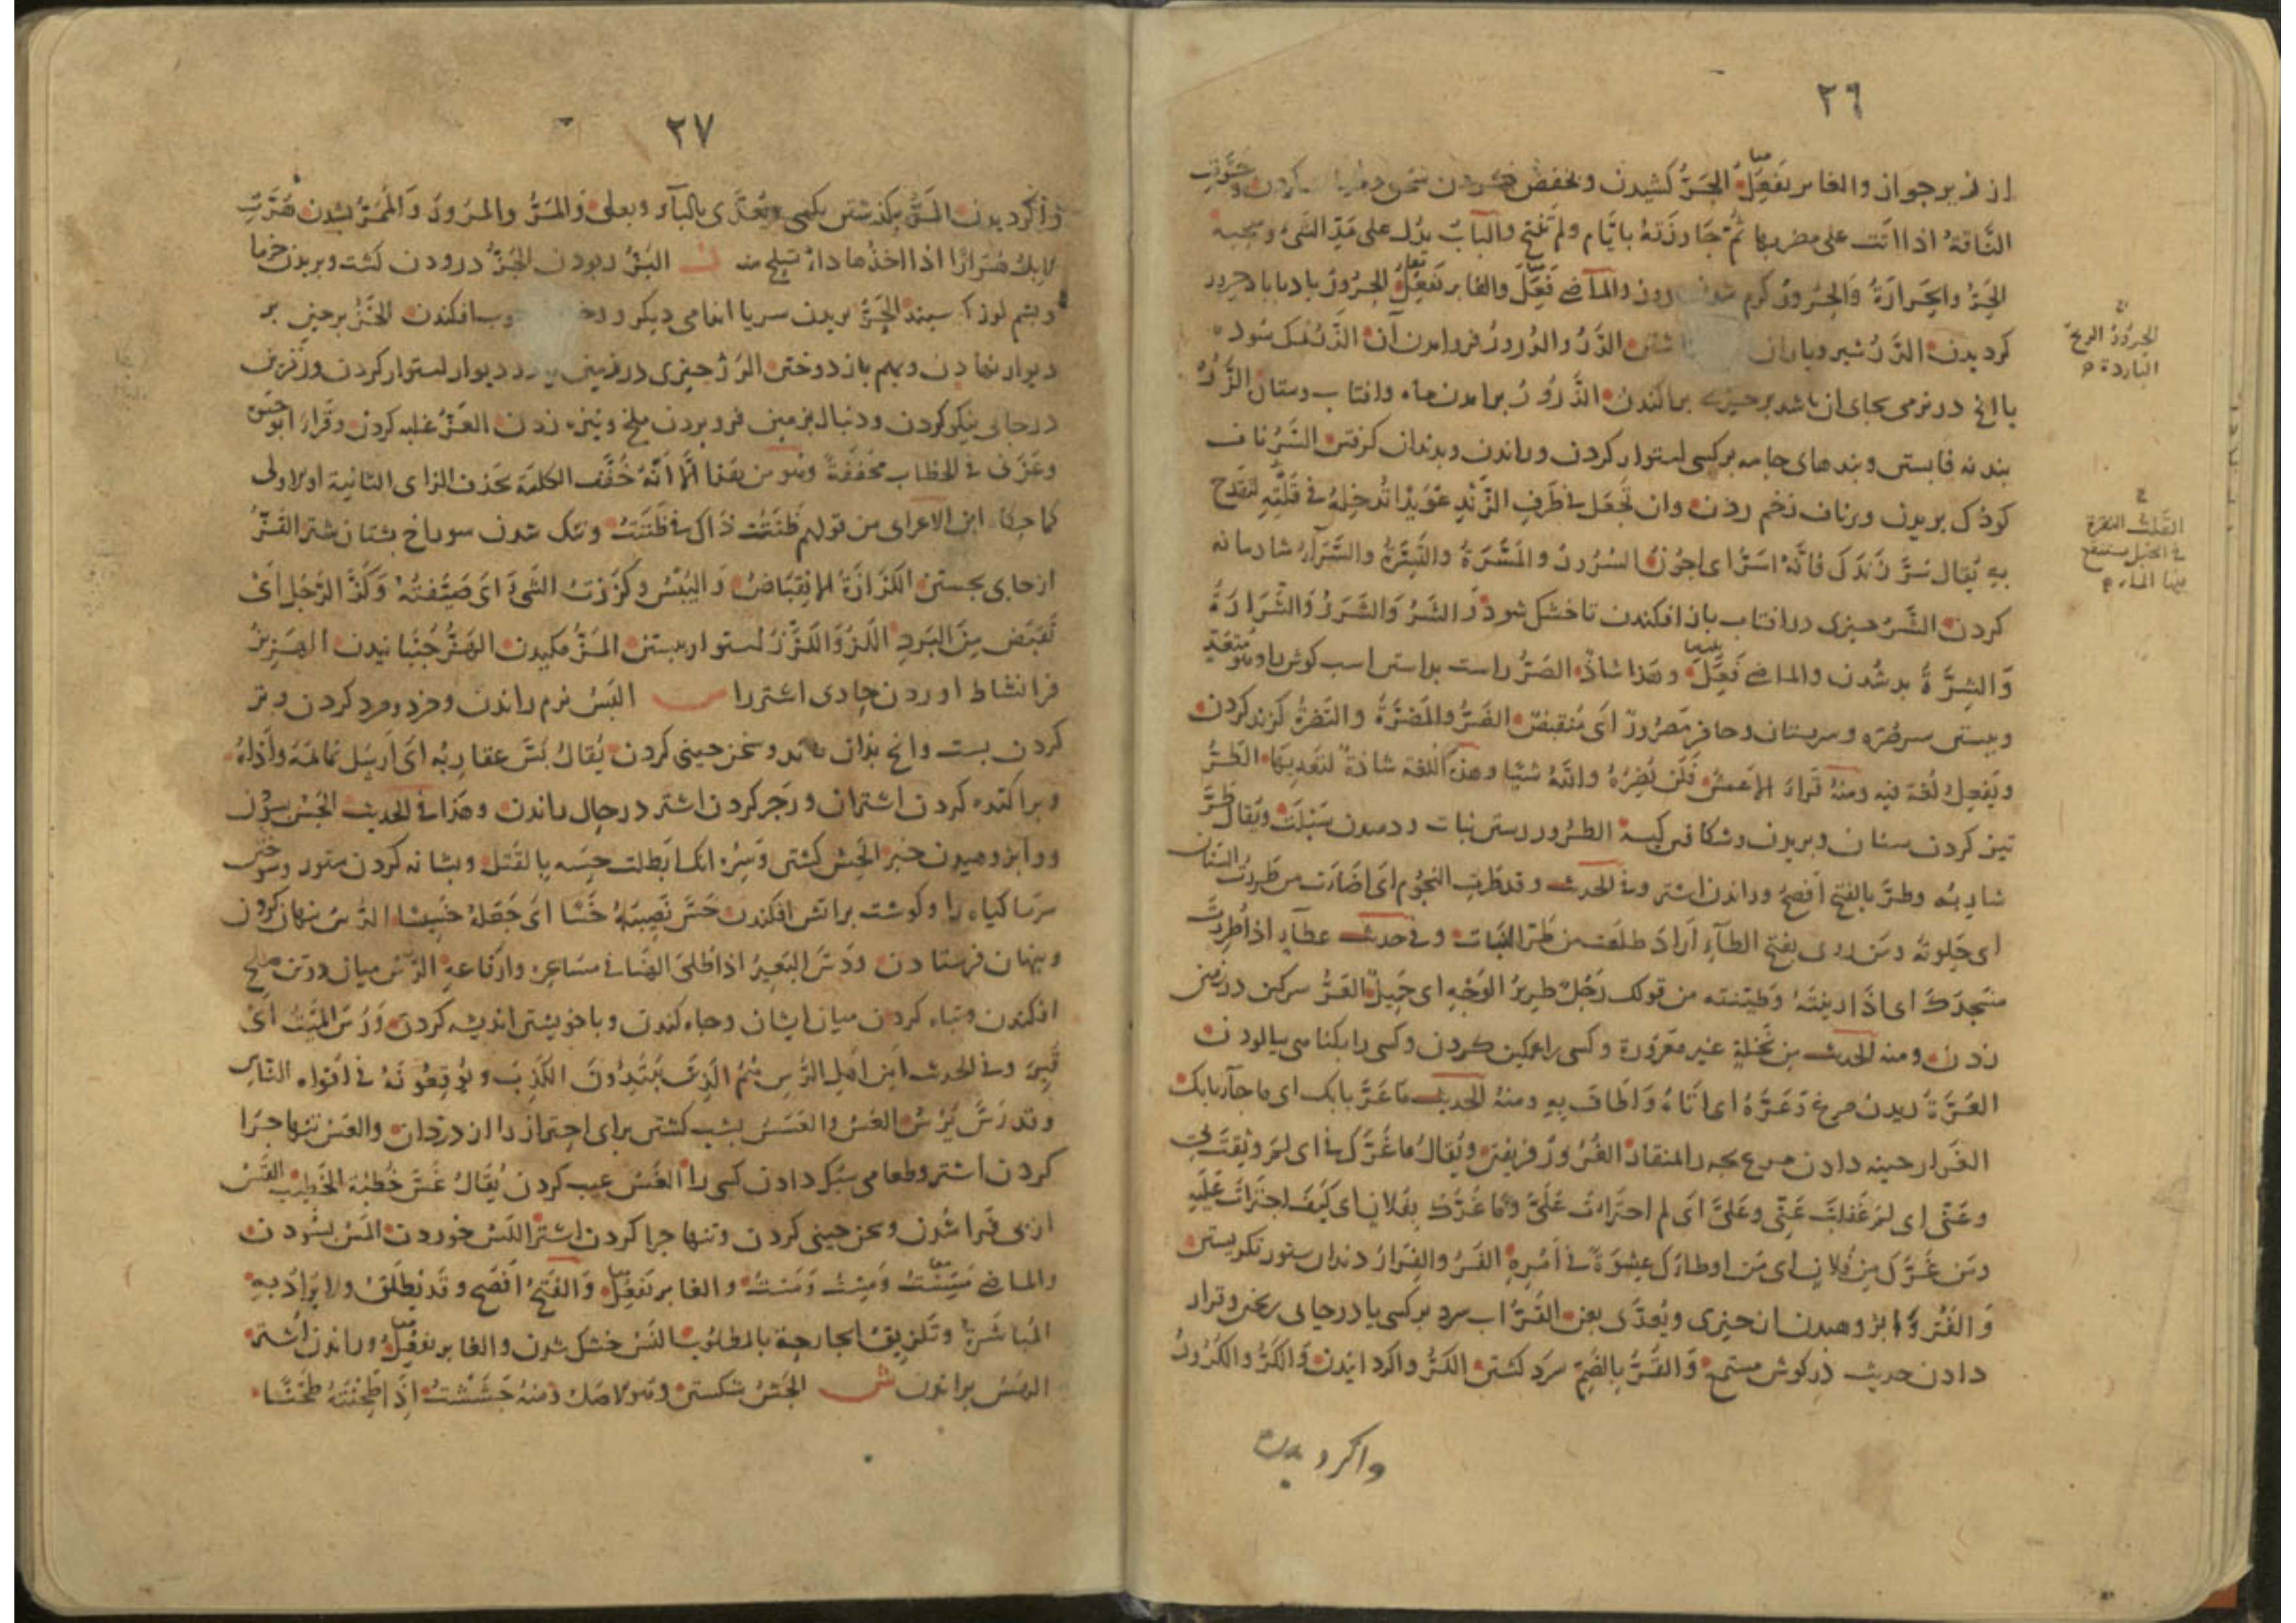 ٢٦
از فر برجواز والغابر تفعل الجَرُّ كشيدن وبخفض كردن سخن
النَّاقةُ اذا اتَت على مضربها ثُمَّ جَاوزَتهُ بايّام ولم تُنتج والبابُ يدُل على مَدِّ الشئ وسحبه
الحَرُّ والحَرارَةُ وَالحُرورُ كرم شدن روز والماضى فَعَلَ والغابر تفعل الحُرُورُ باد بابا حرور
كرديدن الدَّرُّ شير وباران الدَّرُّ والدُرورُ فروامدن آن الذَّرُّ نمك سوده
يا انچ درنرمى بجاى ان باشد برجيزى براكندن الذُّرُورُ برامدن ماه وافتاب وستان الزَّرُّ
بند نه قابستن وبندهاى جامه بركسى استوار كردن وراندن وبدندان كرفتن السَّرُّ ناف
كودك بريدن وبرناف زخم زدن وان تَجعَل فى طَرَفِ الزَّندِ عُوَيدًا تُدخِلهُ فى قَلبِه لتَقدح
بهِ يُقال سُرَّ زَندَكَ فَانّهُ اسَرُّ اى اجوَف السُرُورُ والمَسَرَّةُ والتَّسِرَّةُ والسَّرَآءُ شادمانه
كردن الشَّرُّ جيزى در افتاب باز افكندن تا خشك شود والشَّرُّ وَالشَّرَرُ وَالشَّرَارَةُ
وَالشِرَّةُ بد شُدن والماضى فَعِلَ وهذا شاذٌ الصَرُّ راست براستن اسب كوش را وهو مُتعَدٍّ
وببستن سر صُرّه وسر بستان وحافر مَصرُورٌ اى مُنقبِضٌ الضَرُّ والمَضَرَّةُ والتَضِرَّةُ كزند كردن
وَيَفعِلُ لُغة فيه ومنهُ قَراءَ الاعمش فَلَن يَضِرّهُ وانّهُ شيئا وهذه اللُغة شاذة لتَعديها الطَرُّ
تيز كردن سنان وبريدن وشكافتن كيسه الطُرور رستن نبات ودميدن سَبَلَت ويُقال طَرَّ
شاربُه وطُرَّ بالفتح افصح وراندن اشتر وفى الحديث وقد طُرَّت النجُوم اى اضَاءَت من طَرَرتُ السنان
اى جَلوتهُ ومَن روى بفتح الطآءِ اراد طلعَت من طَرَّ النَبات وفى حديث عطآءٍ اذا طَرَرتَ
مَسجدَكَ اى اذا ادينتَهُ وطَيَّنتَه من قولك رَجُلٌ طَرِيرُ الوَجهِ اى جَميلٌ العَرُّ سركين در زمين
زدن ومنه الحديث من نَخلةٍ غير مَعرُورة وكسى را عركين كردن وكسى را بكناهى بيالودن
العُرَّةُ ريدن مرغ وعَرَّهُ اى اتاهُ واطافَ بِهِ ومنهُ الحديث ما عَرَّ بابك اى ما جاءَ بابك
الغَرار جينه دادن مرغ بجه را بمنقار الغُرُورُ فريفتن ويُقالُ ما غَرَّكَ بى اى لِمَ وثِقتَ بى
وعَنّى اى لِمَ غَفلتَ عَنّى وعَلَىَّ اى لم اجتَراتَ عَلَىَّ وما غَرَّكَ بفُلانٍ اى كيفَ اجتَراتَ عَلَيهِ
ومَن غَرَّكَ مِن فُلانٍ اى مَن اوطاَكَ عِشوَةً فى اَمرِهِ الفَرُّ والفِرارُ دندان ستور نكريستن
وَالفَرُّ وابژوهيدن از جيزى ويُعدّى بعن القَرُّ اب سرد بركسى يا درجاى ريختن وقرار
دادن حديث در كوش مستمع وَالقُرُّ بالضَمّ سَرد كشتن الكَرُّ واكردانيدن وَالكَرُّ والكُرُورُ
واكرديدن
الحُرُورُ الريحُ
الباردة
القَلتُ النقرة
فى الجبل يستنقع
فيها الماء
٢٧
واكرديدن المَرُّ بكذشتن بكسى ويُعدّى بالبآءِ وبعلى وَالمَرُّ والمرُورُ وَالمَمَرُّ بشدن هَرَّت
الابلُ هُرَارًا اذا اخذها داءٌ تسلح منه ز البَزُّ ربودن الجَزُّ درودن كشت وبريدن خرما
وبشم از كوسبند الحَزُّ بريدن سر يا اندامى ديكر افكندن الخَزُّ برجين بر
ديوار نهادن وبهم باز دوختن الرَزُّ جيزى در زمين يا در ديوار استوار كردن وزفرين
درجاى نيكو كردن ودنبال بزمين فرو بردن ملخ ونيزه زدن العَزُّ غلبه كردن وقَراءَ ابو حيوة
وعَزَنى فى الخطاب مُخففَةً وهو من هذا الّا اَنّهُ خُفّف الكلمة بحَذف الزاى الثانية او الاولى
كما حكا ابن الاعرابى من قولهم ظَنَنتُ ذاك فى ظَنَنتُ وتنك شدن سوراخ بستان شتر القَزُّ
ازجاى بجستن الكَزَازَةُ الانقِبَاضُ وَاليُبْسُ وكَزَزتُ الشَّىءَ اى ضَيَّقتُهُ وَكُزَّ الرَّجُلُ اَىْ
تَقَبَض مِنَ البَردِ اللَزُّ وَاللَزَزُ استوار ببستن المَزُّ مكيدن الهَزُّ جُنبانيدن الهَزِيزُ
فرا نشاط اوردن حادى اشتر را س البَسُّ نرم راندن وخرد ومرد كردن وتر
كردن بست وانچ بذان ماند وسخن جينى كردن يُقالُ بَسَّ عقاربُه اى اَرسَل نمائمَهُ واَذاهُ
وبراكنده كردن اشتران وزجر كردن اشتر درحال راندن وهذا فى الحديث الجَسُّ بسودن
ووابژوهيدن خبر الحَسُّ كشتن ومِنهُ انك ابطلت حِسَه بالقَتل وبشانه كردن ستور وسوختن
سرما كياه را وكوشت براتش افكندن خَسَّ نَصِيبَهُ خَسًّا اى جَعَلهُ خَسِيسًا الدَسُّ بنهان كردن
وبنهان فرستادن ودُسَّ البَعيرُ اذا طُلِىَ الهَنَا فى مَسَاعِرِهِ وارفاغه الرَّسُّ ميان دو تن صلح
افكندن وتباه كردن ميان ايشان وجاه كندن وبا خويشتن انديشه كردن وَرُسَّ الميّتُ اَىْ
قُبِرَ وفى الحديث اَمِن اهلِ الرَّسِّ هُم الذين يَبتَدِؤنَ الكَذِبَ ويُوقِعُونَهُ فى افواه النّاسِ
وقد رَسَّ يَرُسُّ العَسُّ والعَسَسُ بشب كشتن براى احتراز را از دزدان والعَسُّ تنها جرا
كردن اشتر وطعامى سبك دادن كسى را الغَسُّ عيب كردن يُقَالُ غَسَّ خُطبَة الخَطِيبِ القَسُّ
ازبى فرا شدن وسخن جينى كردن وتنها جرا كردن اشتر اللَسُّ خوردن المَسُّ بسودن
والماضى مَسِسْتُ وَمِسْتُ وَمَسْتُ والغابر تفعل وَالفَتحُ اَفصَح وقد يُطلَقُ ولا يُرَادُ بِهِ
المُباشَرةُ وتَلزِيقُ الجارحِة بالمطلوب النَسُّ خشك شدن والغابر تفعل وراندن اُشتر
الهَسُّ براندن ش الجَشُّ شكستن وهو الاصل ومنهُ جَشَشتُ اِذا طَحَنتَهُ طحنًا